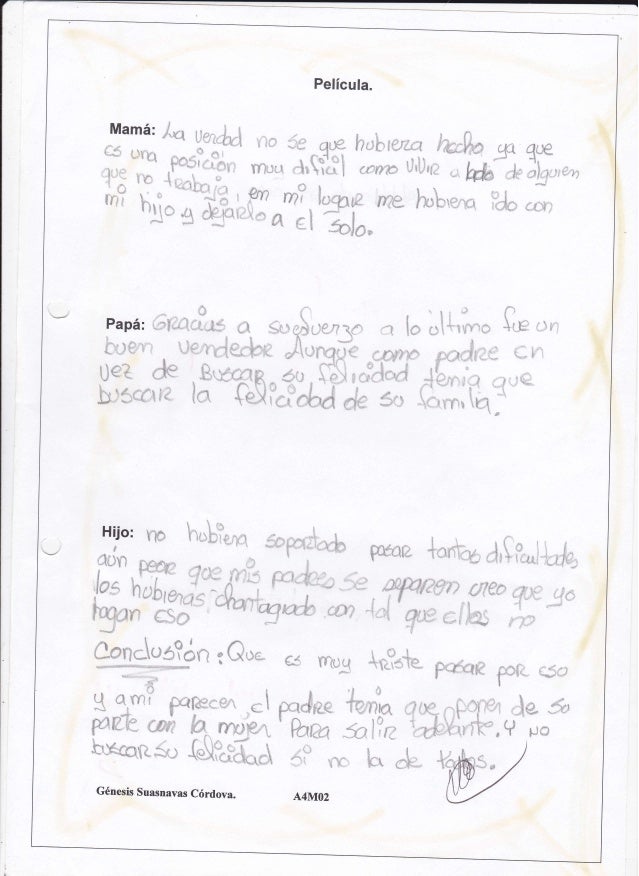 Película.
Mamá: La verdad no se que hubiera hecho ya que
es una posición muy dificil como vivir a lado de alguien
que no trabaja, en mi lugar me hubiera ido con
mi hijo y dejarlo a el solo.
Papá: Gracias a suesfuerzo a lo último fue un
buen vendedor Aunque como padre en
vez de Buscar su felicidad tenia que
buscar la felicidad de su familia.
Hijo: no hubiera soportado pasar tantas dificultades,
aún peor que mis padres se separen creo que yo
los hubieras chantagiado con tal que ellos no
hagan eso
Conclusión: Que es muy triste pasar por eso
y ami parecer, el padre tenia que poner de su
parte con la mujer Para salir adelante. Y no
buscar su felicidad si no la de todos.
Génesis Suasnavas Córdova. A4M02